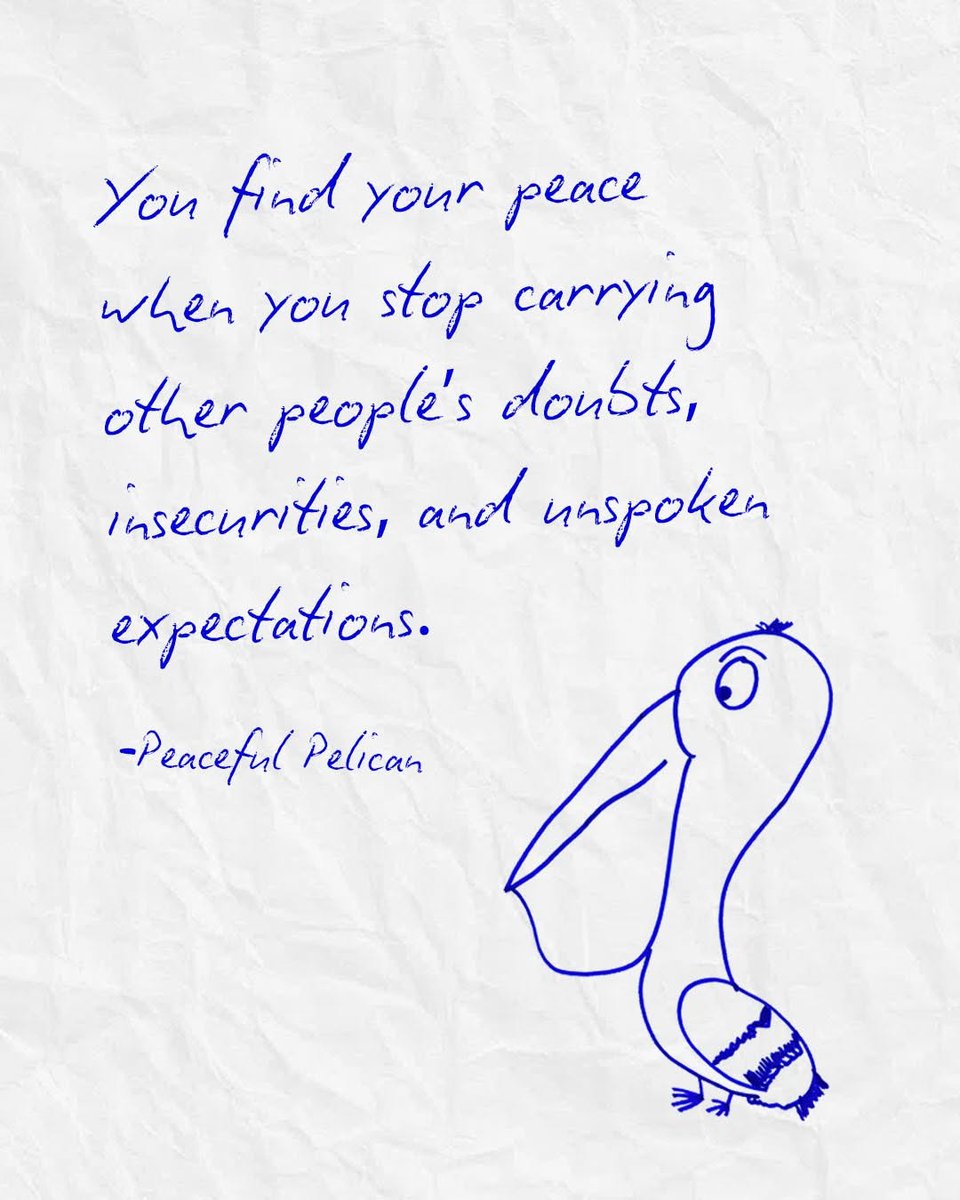 You find your peace
when you stop carrying
other people's doubts,
insecurities, and unspoken
expectations.
-Peaceful Pelican